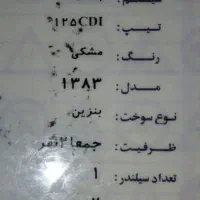 سیستم :
تیپ : ۱۲۵CDI
رنگ : مشکی
مدل : ۱۳۸۳
نوع سوخت : بنزین
ظرفیت : جمعا ۲نفر
تعداد سیلندر : ۱